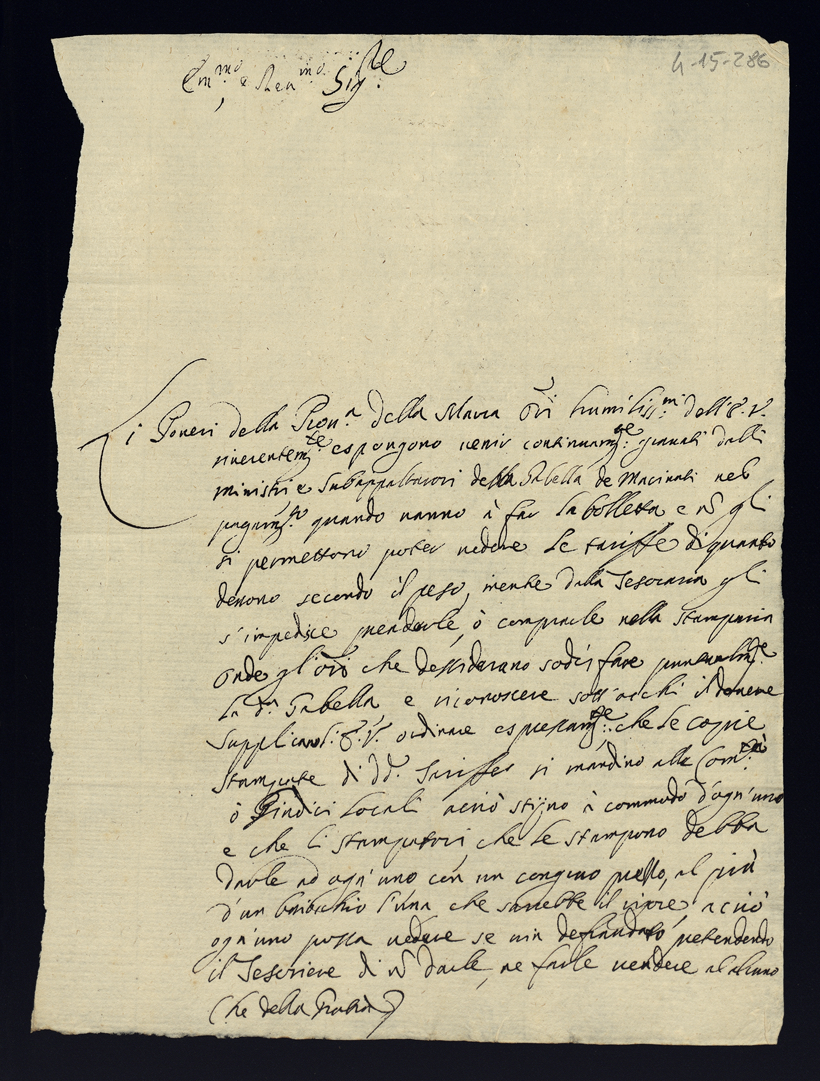 4-15-286
Em.mo e Reu.mo Sig.re
i Poueri della Prou.a della Marca Ori humiliss.mi dell'E.V.
riuerentem.te espongono uenir continuam.te grauati dalli
ministri e subappaltatori della Gabella de Macinati nel
pagam.to quando uanno à far la bolletta e nõ gli
si permettono poter uedere le tariffe di quanto
deuono secondo il peso, mentre dalla Tesoraria gli
s'impedisce prenderle, ò comprarle nella stamparia
Onde gl'ori che dessiderano sodisfare puntualm.te
la d.a Gabella e riconoscere sott'occhi il douere
supplicano l'E.V. ordinare espressam.te che le copie
stampate di dd.e tariffe si mandino alle Com.tà
ò Giudici locali acciò stijno à commodo d'ogn'uno
e che li stampatori che le stampono debba
darle ad ogn'uno con un congruo prezzo, al più
d'un baiocchio l'una che sarebbe il uiuere, acciò
ogn'uno possa uedere se uien defraudato, pretendendo
il Tesoriere di nõ darle, ne farle uendere ad alcuno
Che della Gratia